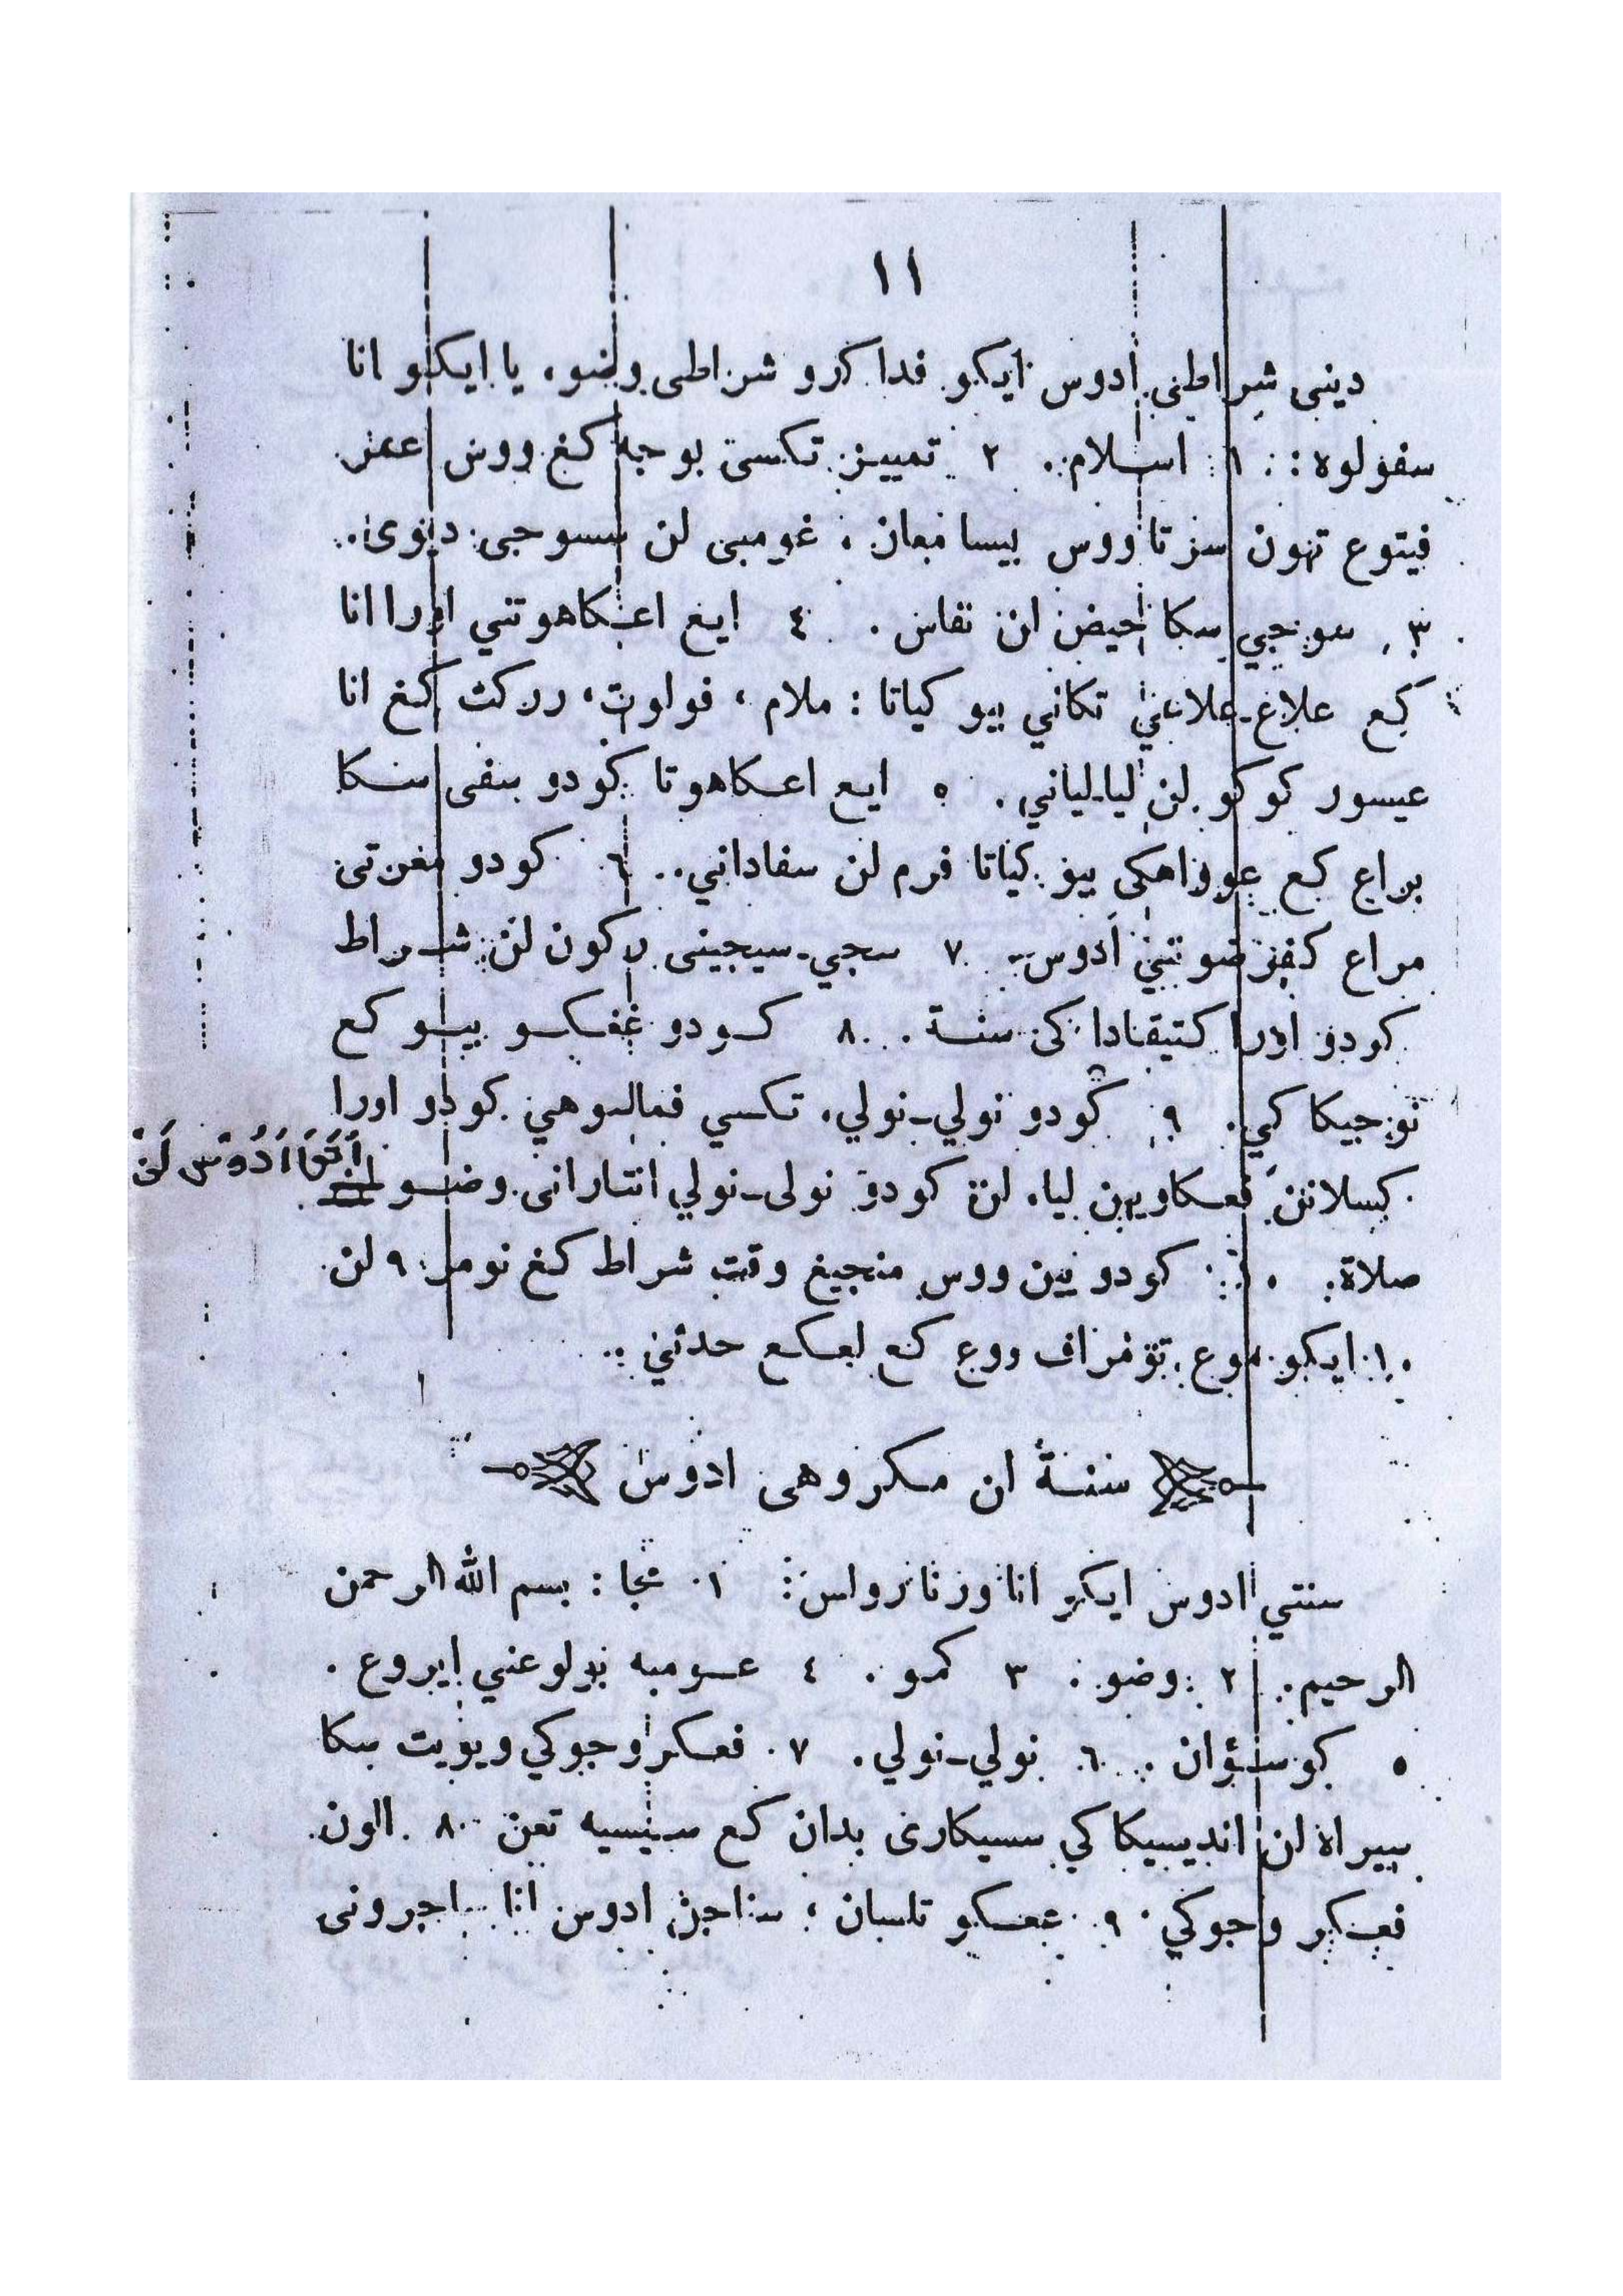 ١١
ديني شراطى ادوس ايكو فدا كرو شراطى وضو، يا ايكو انا
سفولوه : ١ اسلام. ٢ تمييز تكسى بوجه كغ ووس عمر
فيتوع تهون سرتا ووس بيسا معان ، غومبى لن سسوجى ديوى.
٣ سوجي سكا حيض لن نفاس . ٤ ايغ اعكاهوتني اورا انا
كع علاغ-علاغي تكاني بيو كياتا : ملام ، فولوت ، رركت كغ انا
عيسور كوكو لن ليا-لياني . ٥ ايع اعكاهوتا كودو سفى سكا
براع كع عوواهكى بيو كياتا فرم لن سفاداني . ٦ كودو مغرتى
مراع كفرضوتني ادوس . ٧ سجي-سيجينى ركون لن شراط
كودو اورا كتيقادا كى سنة . ٨ كودو غفكو بيو كع
نوجيكا كي . ٩ كودو نولي-نولي ، تكسي فمالسوهي كودو اورا
كسلانن فعكاويهن ليا . لن كودو نولى-نولي انتارانى وضو لن
اَتَوَا اَدُوْس لَنْ
صلاة . ١٠ كودو يين ووس منجيغ وقت شراط كغ نومر ٩ لن
١٠ ايكو موع تومراف ووع كع لعكع حدثني .
سنة لن مكروهى ادوس
سنتي ادوس ايكو انا ورنا رولس : ١ مچا : بسم الله الرحمن
الرحيم . ٢ وضو . ٣ كمو . ٤ عومبه بولوعني ايروع .
٥ كوسوٴان . ٦ نولي-نولي . ٧ فعكر وجوكي ويويت سكا
سيراه لن انديسيكاكي سسيكارى بدان كع سيسيه تعن ٨ الون
فعكر وجوكي ٩ عفكو تلسان ، سناجن ادوس انا جرونى